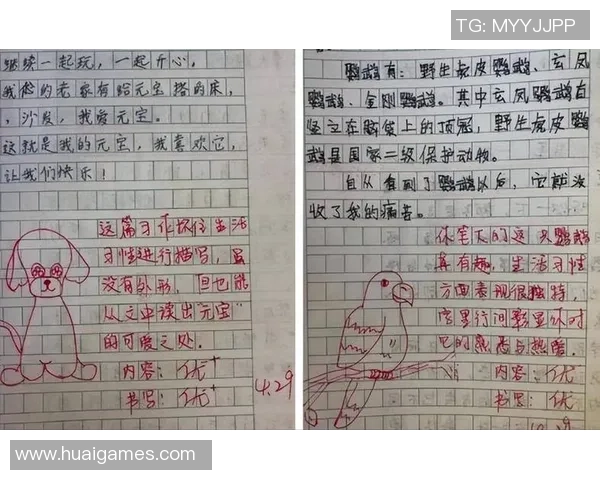 TG: MYYJJPP
继续一起玩，一起开心，
我们的老家有给元宝搭的床，
，沙发，我爱元宝。
这就是我的元宝，我喜欢它，
让我们快乐！
这篇习作抓住生活
习性进行描写，虽
没有外形，但也能
从文中读出“元宝”
的可爱之处。
内容：优+
书写：优+
4.29
鹦鹉有：野生虎皮鹦鹉、玄凤
鹦鹉、金刚鹦鹉。其中玄凤鹦鹉有
竖立在脑袋上的顶冠，野生虎皮鹦
鹉是国家二级保护动物。
自从看到了鹦鹉以后，它就治
收了我的痛苦。
你笔下的这只鹦鹉
真有趣，生活习性
方面表现很独特，
字里行间彰显你对
它的熟悉与热爱。
内容：优
书写：优
www.huaigames.com